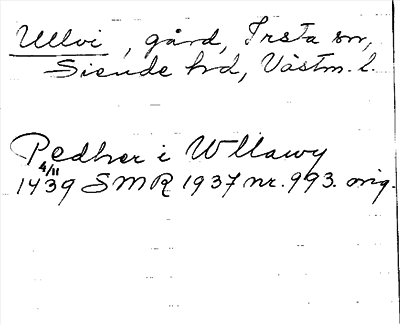 Ullvi, gård, Irsta sn,
Siende hd, Västm. l.
Pedher i Wllawy
4/11
1439 SMR 1937 nr. 993. orig.